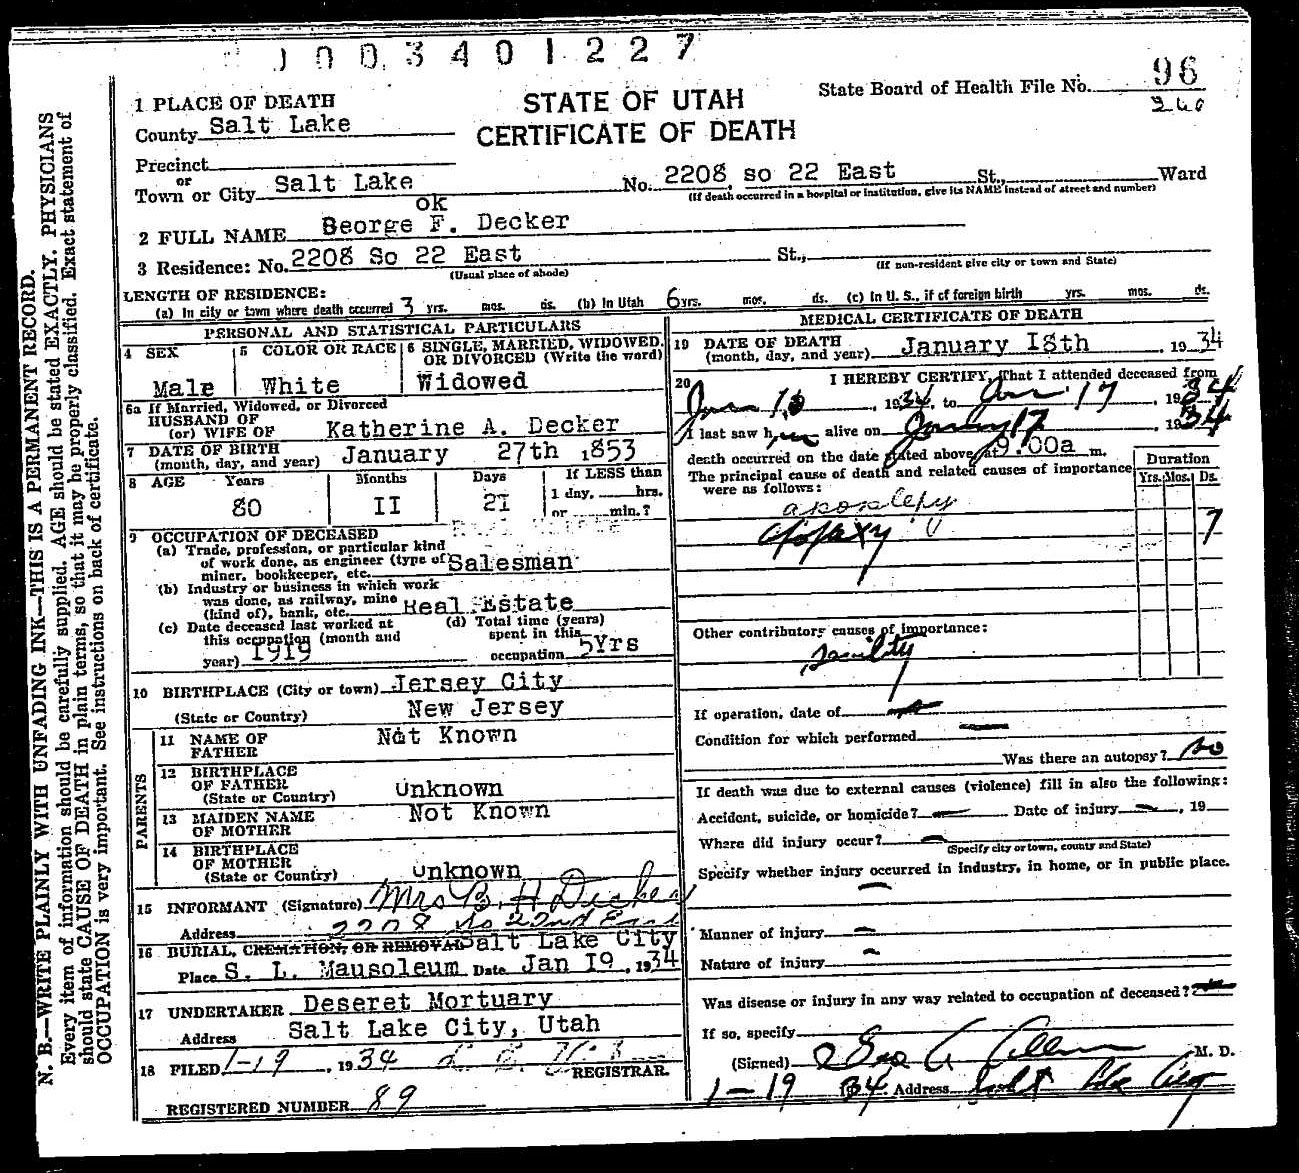 1003401227
State Board of Health File No. 96
260
STATE OF UTAH
CERTIFICATE OF DEATH
1 PLACE OF DEATH
County Salt Lake
Precinct
or
Town or City Salt Lake No. 2208 so 22 East St., Ward
(If death occurred in a hospital or institution, give its NAME instead of street and number)
ok
2 FULL NAME George F. Decker
3 Residence: No. 2208 So 22 East St.,
(Usual place of abode) (If non-resident give city or town and State)
LENGTH OF RESIDENCE:
(a) In city or town where death occurred 3 yrs. mos. ds. (b) In Utah 6 yrs. mos. ds. (c) In U. S., if of foreign birth yrs. mos. ds.
PERSONAL AND STATISTICAL PARTICULARS
4 SEX Male
5 COLOR OR RACE White
6 SINGLE, MARRIED, WIDOWED, OR DIVORCED (Write the word) Widowed
6a If Married, Widowed, or Divorced
HUSBAND OF
(or) WIFE OF Katherine A. Decker
7 DATE OF BIRTH
(month, day, and year) January 27th 1853
8 AGE Years Months Days If LESS than
80 II 2I 1 day, hrs.
or min.?
9 OCCUPATION OF DECEASED
(a) Trade, profession, or particular kind
of work done, as engineer (type of
miner, bookkeeper, etc. Salesman
(b) Industry or business in which work
was done, as railway, mine
(kind of), bank, etc. Real Estate
(c) Date deceased last worked at
this occupation (month and
year) 1919
(d) Total time (years)
spent in this
occupation 5Yrs
10 BIRTHPLACE (City or town) Jersey City
(State or Country) New Jersey
PARENTS
11 NAME OF
FATHER Not Known
12 BIRTHPLACE
OF FATHER
(State or Country) Unknown
13 MAIDEN NAME
OF MOTHER Not Known
14 BIRTHPLACE
OF MOTHER
(State or Country) Unknown
15 INFORMANT (Signature) Mrs B. H Decker
Address 2208 So 22nd East
16 BURIAL, CREMATION, OR REMOVAL Salt Lake City
Place S. L. Mausoleum Date Jan I9, 1934
17 UNDERTAKER Deseret Mortuary
Address Salt Lake City, Utah
18 FILED 1-19, 1934
REGISTRAR.
REGISTERED NUMBER 89
MEDICAL CERTIFICATE OF DEATH
19 DATE OF DEATH
(month, day, and year) January I8th 1934
20 I HEREBY CERTIFY, That I attended deceased from
Jan 1, 1934, to Jan 17, 1934
I last saw him alive on January 17, 1934
death occurred on the date stated above, at 9.00a m.
The principal cause of death and related causes of importance
were as follows:
Duration
Yrs. Mos. Ds.
apoplexy
7
Other contributory causes of importance:
Senility
If operation, date of
Condition for which performed
Was there an autopsy? no
If death was due to external causes (violence) fill in also the following:
Accident, suicide, or homicide? Date of injury , 19
Where did injury occur?
(Specify city or town, county and State)
Specify whether injury occurred in industry, in home, or in public place.
Manner of injury
Nature of injury
Was disease or injury in any way related to occupation of deceased?
If so, specify
(Signed) M. D.
1-19 34. Address Salt Lake City
N. B.—WRITE PLAINLY WITH UNFADING INK—THIS IS A PERMANENT RECORD.
Every item of information should be carefully supplied. AGE should be stated EXACTLY. PHYSICIANS
should state CAUSE OF DEATH in plain terms, so that it may be properly classified. Exact statement of
OCCUPATION is very important. See instructions on back of certificate.